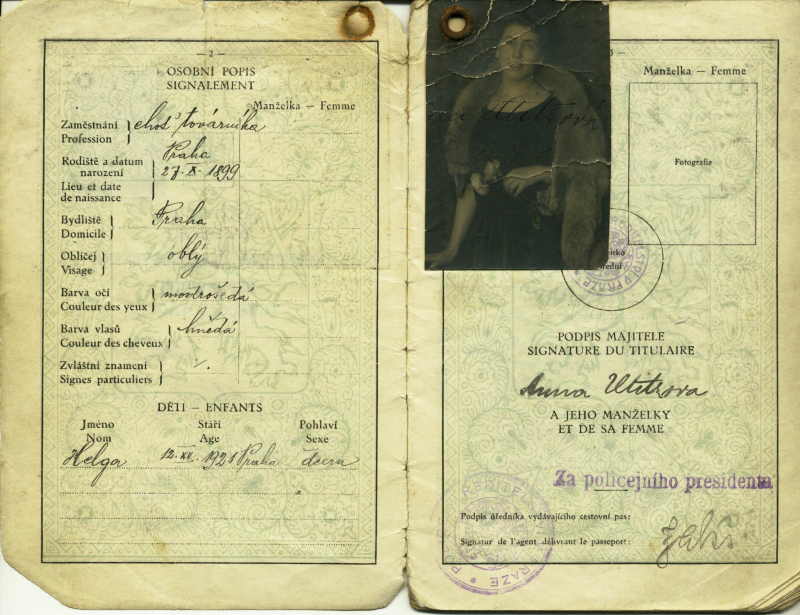 — 2 —
OSOBNÍ POPIS
SIGNALEMENT
Manželka — Femme
Zaměstnání
Profession
choť továrníka
Rodiště a datum
narození
Lieu et date
de naissance
Praha
27. X. 1899
Bydliště
Domicile
Praha
Obličej
Visage
oblý
Barva očí
Couleur des yeux
modrošedá
Barva vlasů
Couleur des cheveux
hnědá
Zvláštní znamení
Signes particuliers
DĚTI — ENFANTS
Jméno Stáří Pohlaví
Nom Age Sexe
Helga 12. XII. 1921 Praha dcera
Manželka — Femme
Fotografie
PODPIS MAJITELE
SIGNATURE DU TITULAIRE
Anna Utitzova
A JEHO MANŽELKY
ET DE SA FEMME
Za policejního presidenta
Podpis úředníka vydávajícího cestovní pas:
Signatur de l'agent délivrant le passeport: